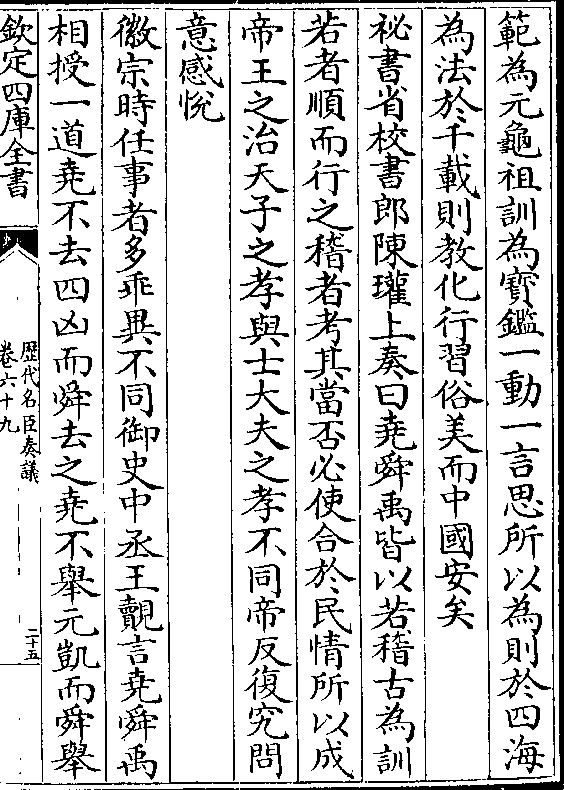 範為元龜祖訓為寳鑑一動一言思所以為則於四海
為法於千載則教化行習俗美而中國安矣
祕書省校書郎陳瓘上奏曰堯舜禹皆以若稽古為訓
若者順而行之稽者考其當否必使合於民情所以成
帝王之治天子之孝與士大夫之孝不同帝反復究問
意感悅
徽宗時任事者多乖異不同御史中丞王覿言堯舜禹
相授一道堯不去四凶而舜去之堯不舉元凱而舜舉
欽定四庫全書
歴代名臣奏議
卷六十九
二十五